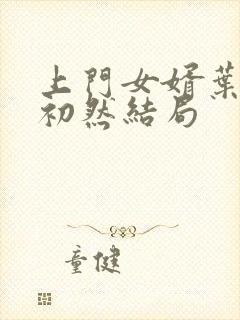 上門女婿葉
初然結局
童健